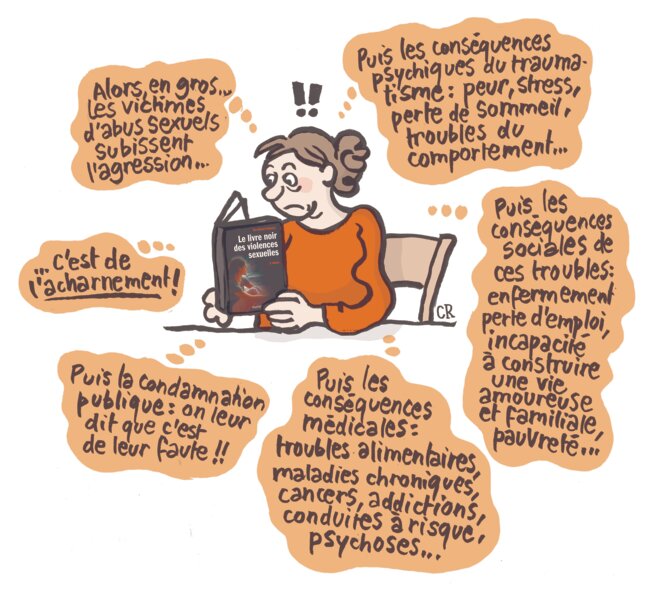 Alors, en gros...
les victimes
d'abus sexuels
subissent
l'agression...
!!
Puis les conséquences
psychiques du trauma-
tisme : peur, stress,
perte de sommeil,
troubles du
comportement...
Puis les
conséquences
sociales de
ces troubles:
enfermement
perte d'emploi,
incapacité
à construire
une vie
amoureuse
et familiale,
pauvreté...
Puis les
conséquences
médicales :
troubles alimentaires,
maladies chroniques,
cancers, addictions,
conduites à risque,
psychoses...
Puis la condamnation
publique : on leur
dit que c'est
de leur faute !!
... c'est de
l'acharnement !
Le livre noir
des violences
sexuelles
CR